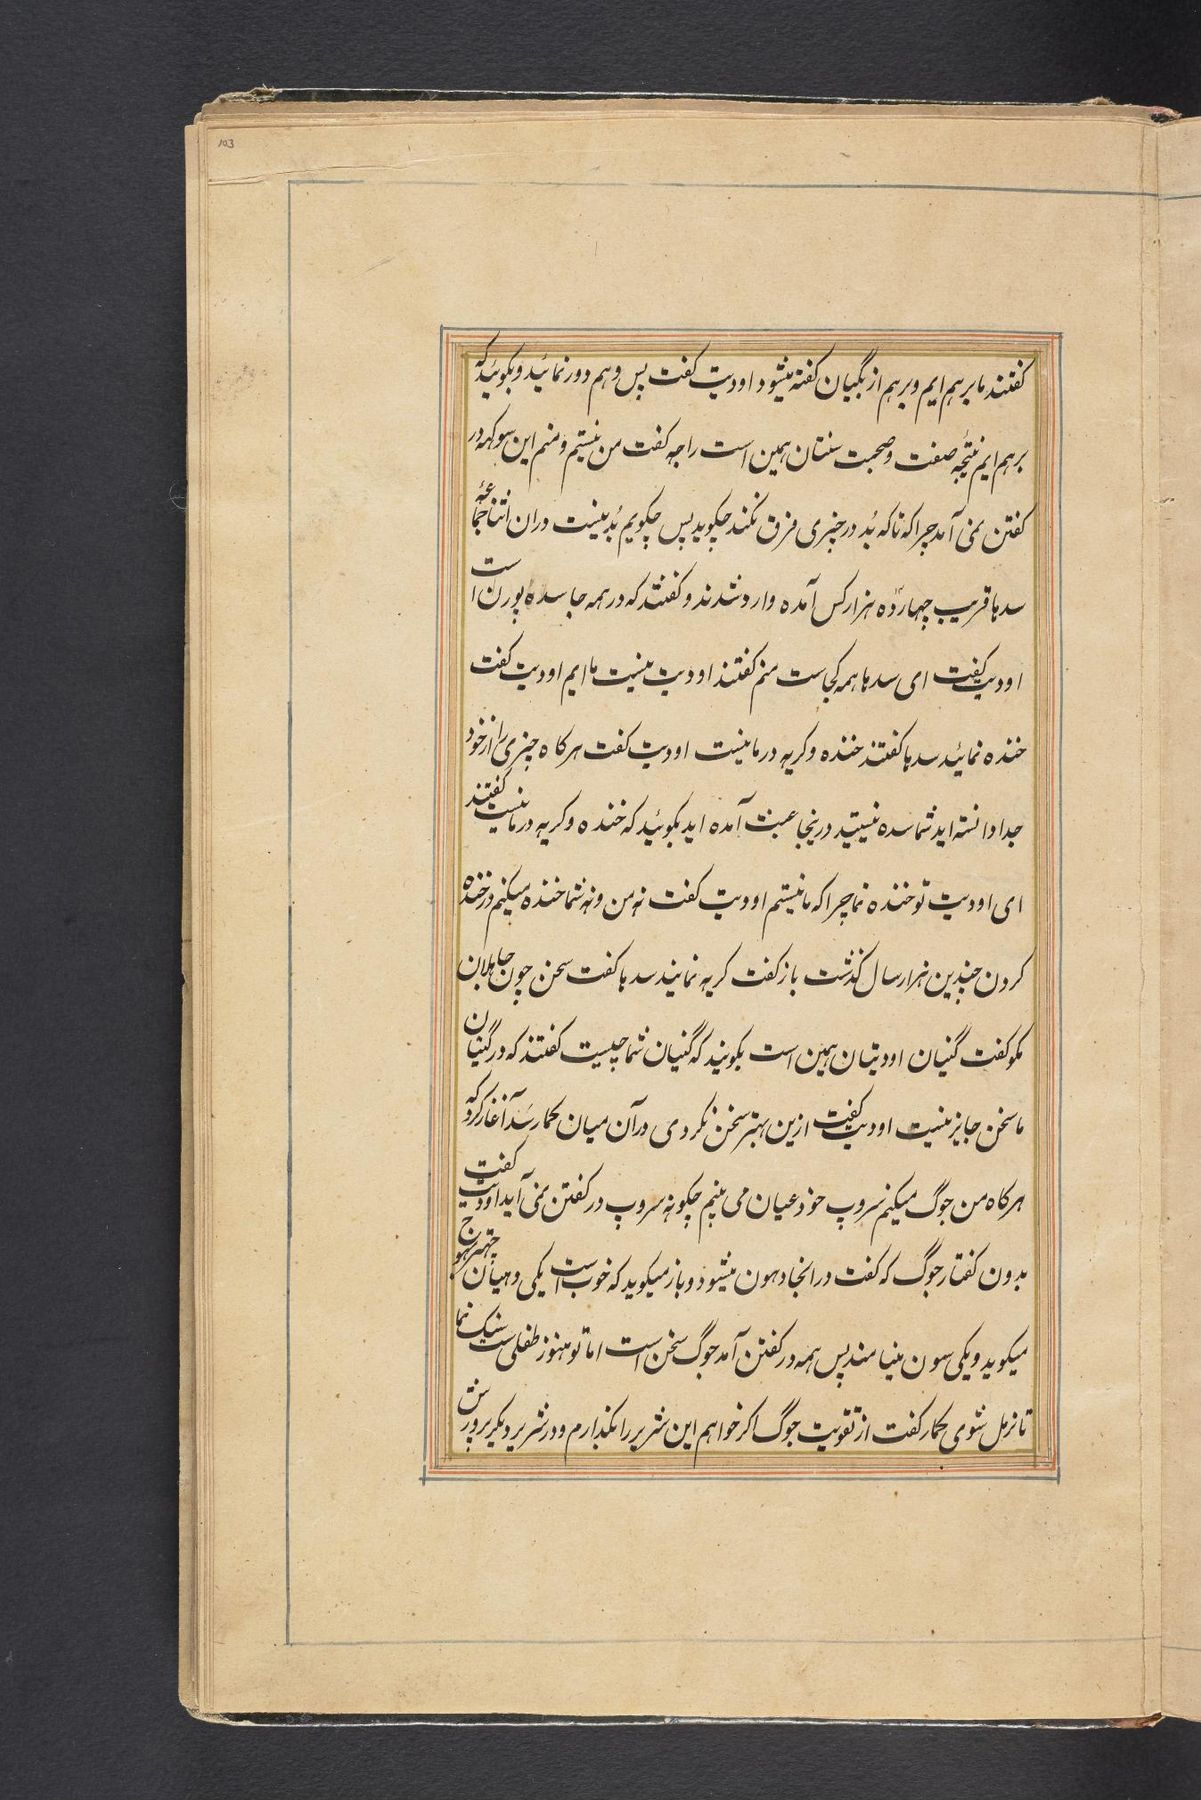 103
کفتند ما برهم ایم و برهم از بگیان کفته میشود اودیت کفت پس وهم دور نمائید و بکوئید که
برهم ایم نتیجه صفت و صحبت سنتان همین است راجه کفت من نیستم و منم این سو کهه در
کفتن نمی آمد چرا که تا که بُد در چیزی فرق نکند چکوید پس چکویم بُد نیست دران اثنا جماعهٔ
سدها قریب چهارده هزار کس آمده وارد شدند و کفتند که در همه جا سدهٔ پورن است
اودیت کفت ای سدها همه کجاست منم کفتند اودیت نیست ما ایم اودیت کفت
خنده نمائید سدها کفتند خنده و کریه در ما نیست اودیت کفت هرکاه چیزی را از خود
جدا دانسته اید شما سده نیستید درینجا عبث آمده اید بکوئید که خنده و کریه در ما نیست کفتند
ای اودیت تو خنده نما چرا که ما نیستم اودیت کفت نه من و نه شما خنده میکنیم در خنده
کردن چندین هزار سال کذشت باز کفت کریه نمایند سدها کفت سخن چون جاهلان
مکو کفت گنیان اودیتان همین است بکوئید که گنیان شما چیست کفتند که در گنیان
ما سخن جایز نیست اودیت کفت ازین بهتر سخن نکردی در آن میان کمار سد آغاز کرد که
هرکاه من جوگ میکنم سروپ خود عیان می بینم چکونه سروپ در کفتن نمی آید اودیت کفت
بدون کفتار جوگ که کفت در انجا دهون میشود و باز میکوید که خوب است یکی دهیان
میکوید و یکی سون مینامند پس همه در کفتن آمد جوگ سخن است اما تو هنوز طفلی ست سنک نما
تا نرمل شوی کمار کفت از تقویت جوگ اکر خواهم این شریر را بکذارم و در شریر دیکر پرورش